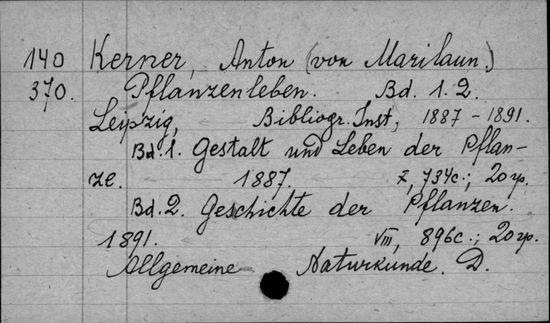 140 Kerner, Anton (von Marilaun.)
370. Pflanzenleben. Bd. 1. 2.
Leipzig, Bibliogr. Inst, 1887 - 1891.
Bd. 1. Gestalt und Leben der Pflan-
ze. 1887. X, 734 c.; 20 гр.
Bd. 2. Geschichte der Pflanzen.
1891. VIII, 896 c.; 20 гр.
Allgemeine Naturkunde. D.